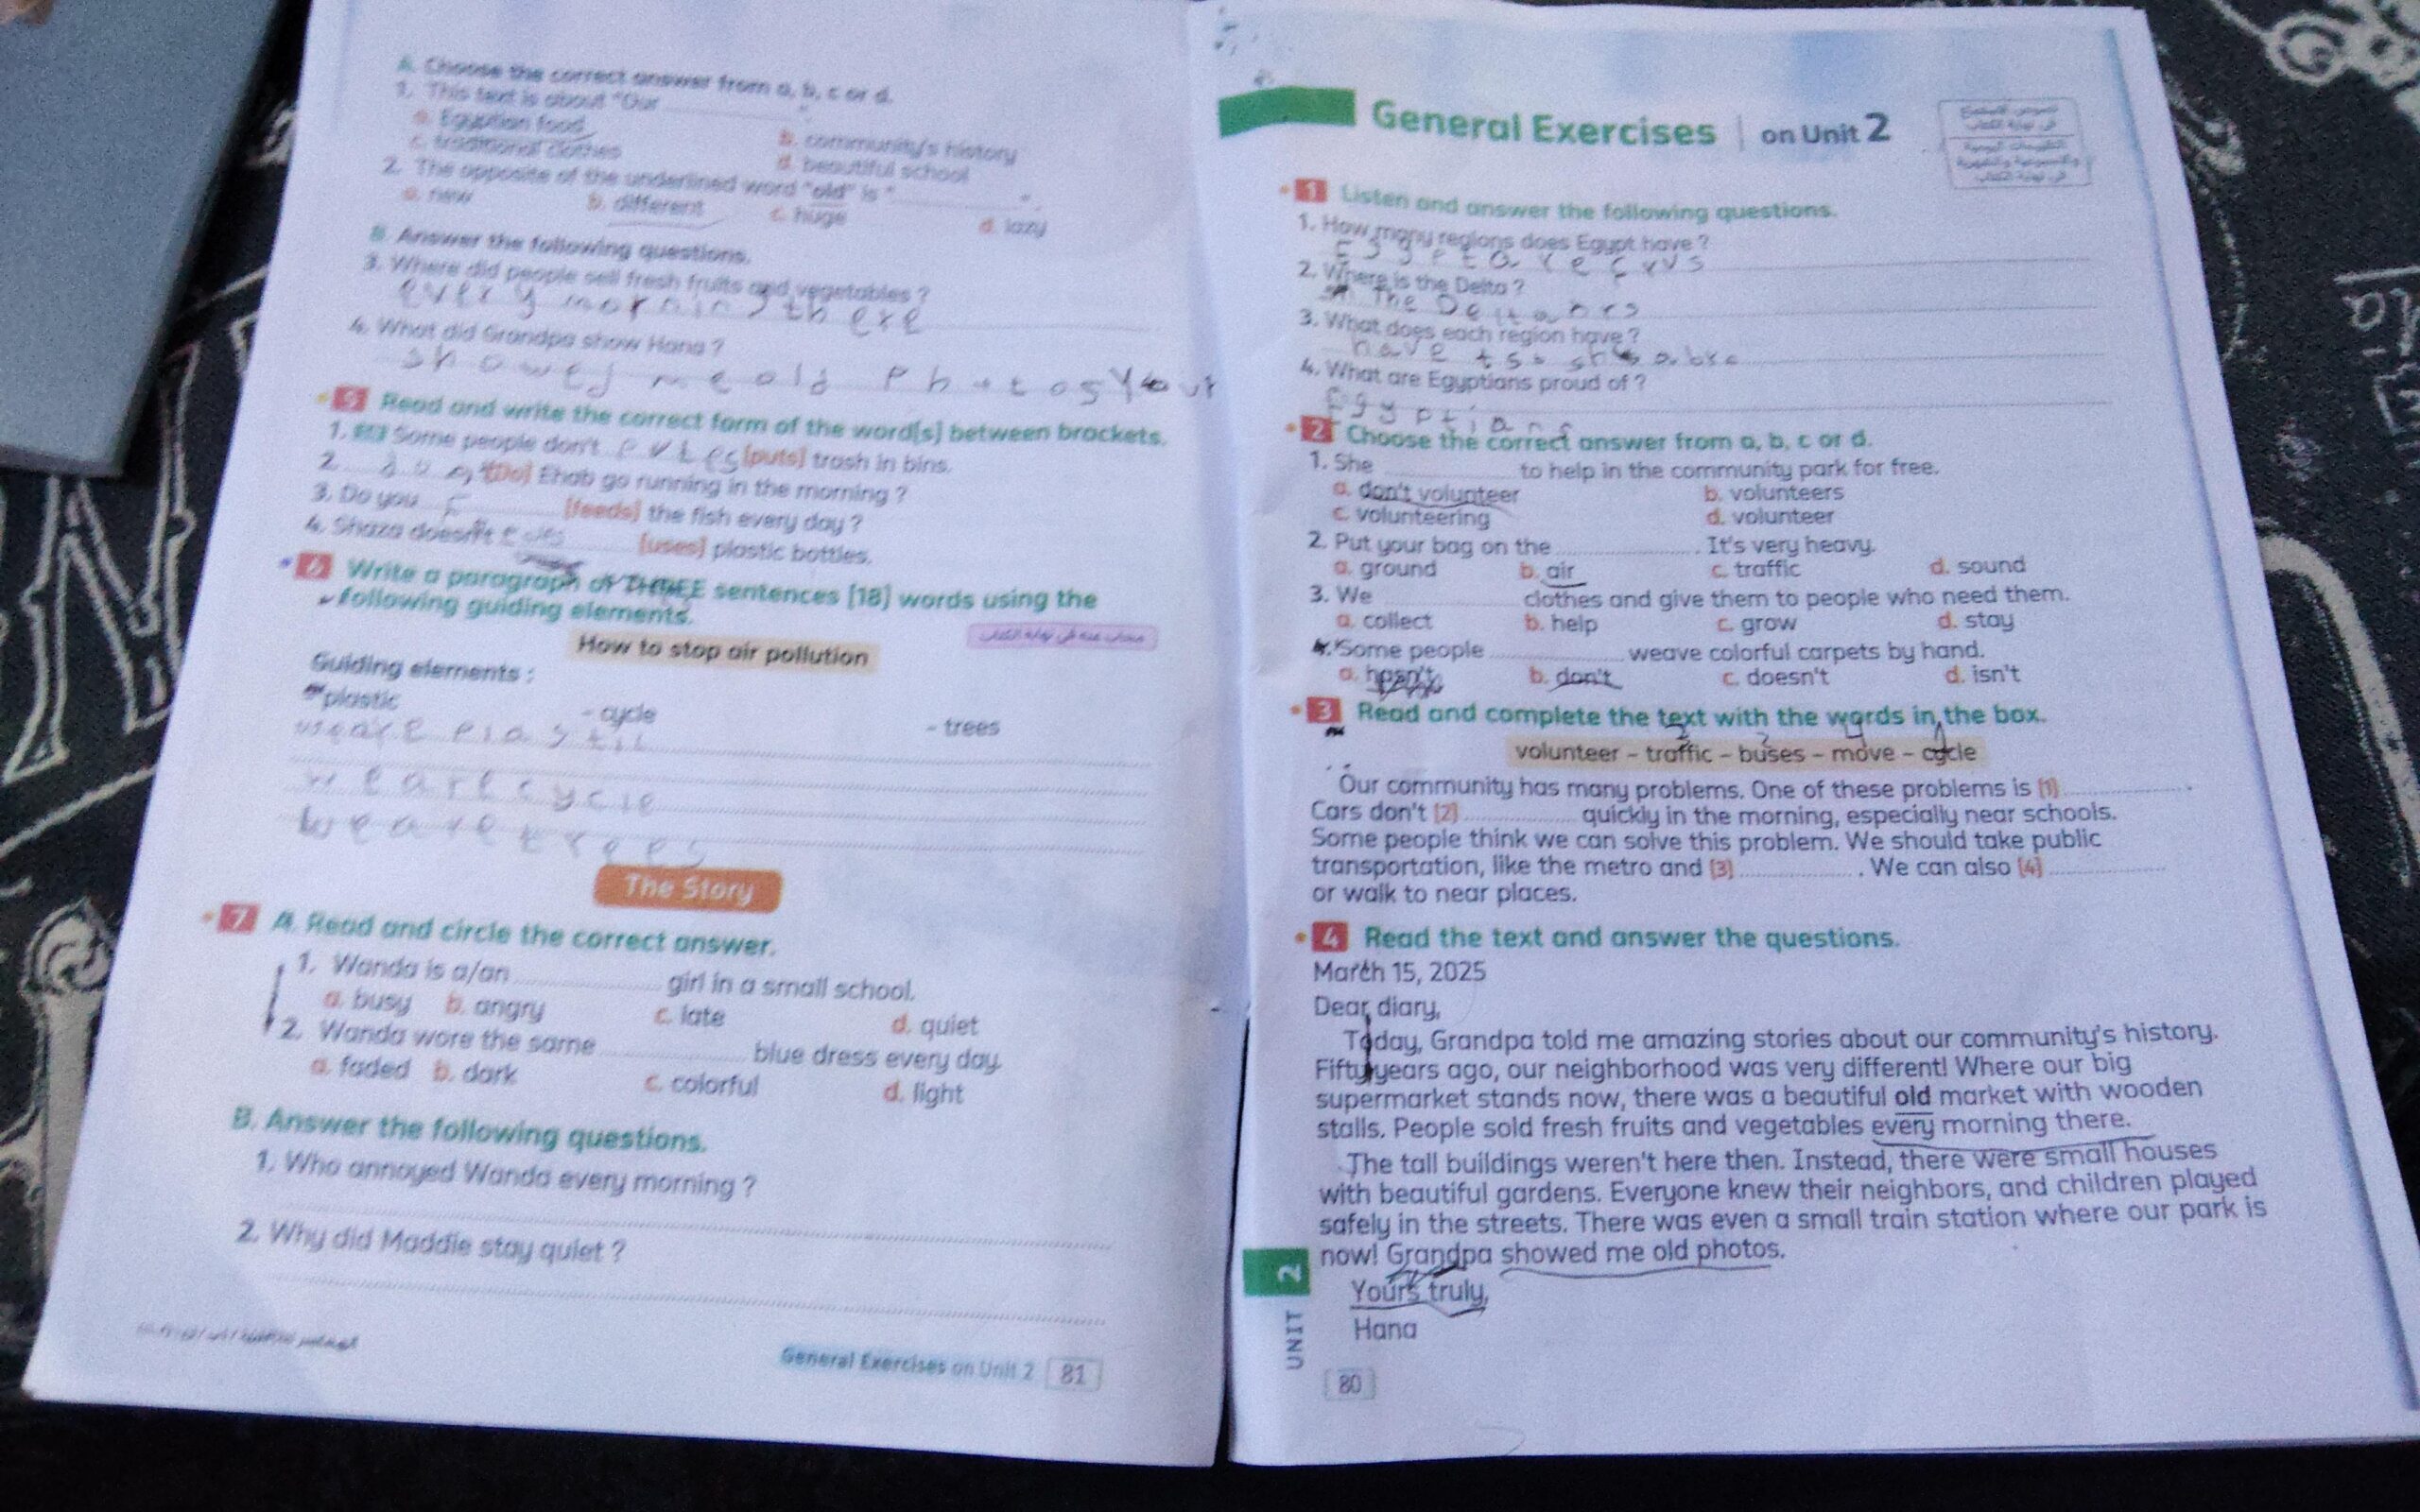 General Exercises | on Unit 2
1 Listen and answer the following questions.
1. How many regions does Egypt have ?
2. Where is the Delta ?
The Delta
3. What does each region have ?
have
4. What are Egyptians proud of ?
Egyptians
2 Choose the correct answer from a, b, c or d.
1. She ............ to help in the community park for free.
a. don't volunteer b. volunteers
c. volunteering d. volunteer
2. Put your bag on the ............ . It's very heavy.
a. ground b. air c. traffic d. sound
3. We ............ clothes and give them to people who need them.
a. collect b. help c. grow d. stay
4. Some people ............ weave colorful carpets by hand.
a. hasn't b. don't c. doesn't d. isn't
3 Read and complete the text with the words in the box.
volunteer – traffic – buses – move – cycle
Our community has many problems. One of these problems is (1) ............ .
Cars don't (2) ............ quickly in the morning, especially near schools.
Some people think we can solve this problem. We should take public
transportation, like the metro and (3) ............ . We can also (4) ............
or walk to near places.
4 Read the text and answer the questions.
March 15, 2025
Dear diary,
Today, Grandpa told me amazing stories about our community's history.
Fifty years ago, our neighborhood was very different! Where our big
supermarket stands now, there was a beautiful old market with wooden
stalls. People sold fresh fruits and vegetables every morning there.
The tall buildings weren't here then. Instead, there were small houses
with beautiful gardens. Everyone knew their neighbors, and children played
safely in the streets. There was even a small train station where our park is
now! Grandpa showed me old photos.
Yours truly,
Hana
UNIT 2
80
A. Choose the correct answer from a, b, c or d.
1. This text is about "Our ............ ".
a. Egyptian food b. community's history
c. traditional clothes d. beautiful school
2. The opposite of the underlined word "old" is " ............ ".
a. new b. different c. huge d. lazy
B. Answer the following questions.
3. Where did people sell fresh fruits and vegetables ?
every morning there
4. What did Grandpa show Hana ?
showed me old Photos Your
5 Read and write the correct form of the word(s) between brackets.
1. Some people don't [puts] trash in bins.
2. [Do] Ehab go running in the morning ?
3. Do you ............ [feeds] the fish every day ?
4. Shaza doesn't ............ [uses] plastic bottles.
6 Write a paragraph of THREE sentences (18) words using the
following guiding elements.
How to stop air pollution
مجاب عنه في نهاية الكتاب
Guiding elements :
- plastic - cycle - trees
we are cycle
we are trees
The Story
7 A. Read and circle the correct answer.
1. Wanda is a/an ............ girl in a small school.
a. busy b. angry c. late d. quiet
2. Wanda wore the same ............ blue dress every day.
a. faded b. dark c. colorful d. light
B. Answer the following questions.
1. Who annoyed Wanda every morning ?
2. Why did Maddie stay quiet ?
General Exercises on Unit 2 81